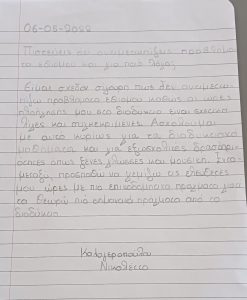 06-05-2022
Πιστεύεις ότι αντιμετωπίζεις πρόβλημα
το εθισμού και για ποιο λόγο;
Είμαι σχεδόν σίγουρη πως δεν αντιμετω-
πίζω προβλήματα εθισμού καθώς οι ώρες
πλοήγησής μου στο διαδίκτυο είναι σχετικά
λίγες και συγκεκριμένες. Ασχολούμαι
με αυτό κυρίως για τα διαδικτυακά
μαθήματα και για εξωσχολικές δραστηρι-
ότητες όπως ξένες γλώσσες και μουσική. Στο
μεταξύ, προσπαθώ να γεμίζω τις ελεύθερες
μου ώρες με πιο εποικοδομητικά πράγματα που
τα θεωρώ πιο σημαντικά πράγματα από το
διαδίκτυο.
Καλογεροπούλου
Νικολέττα